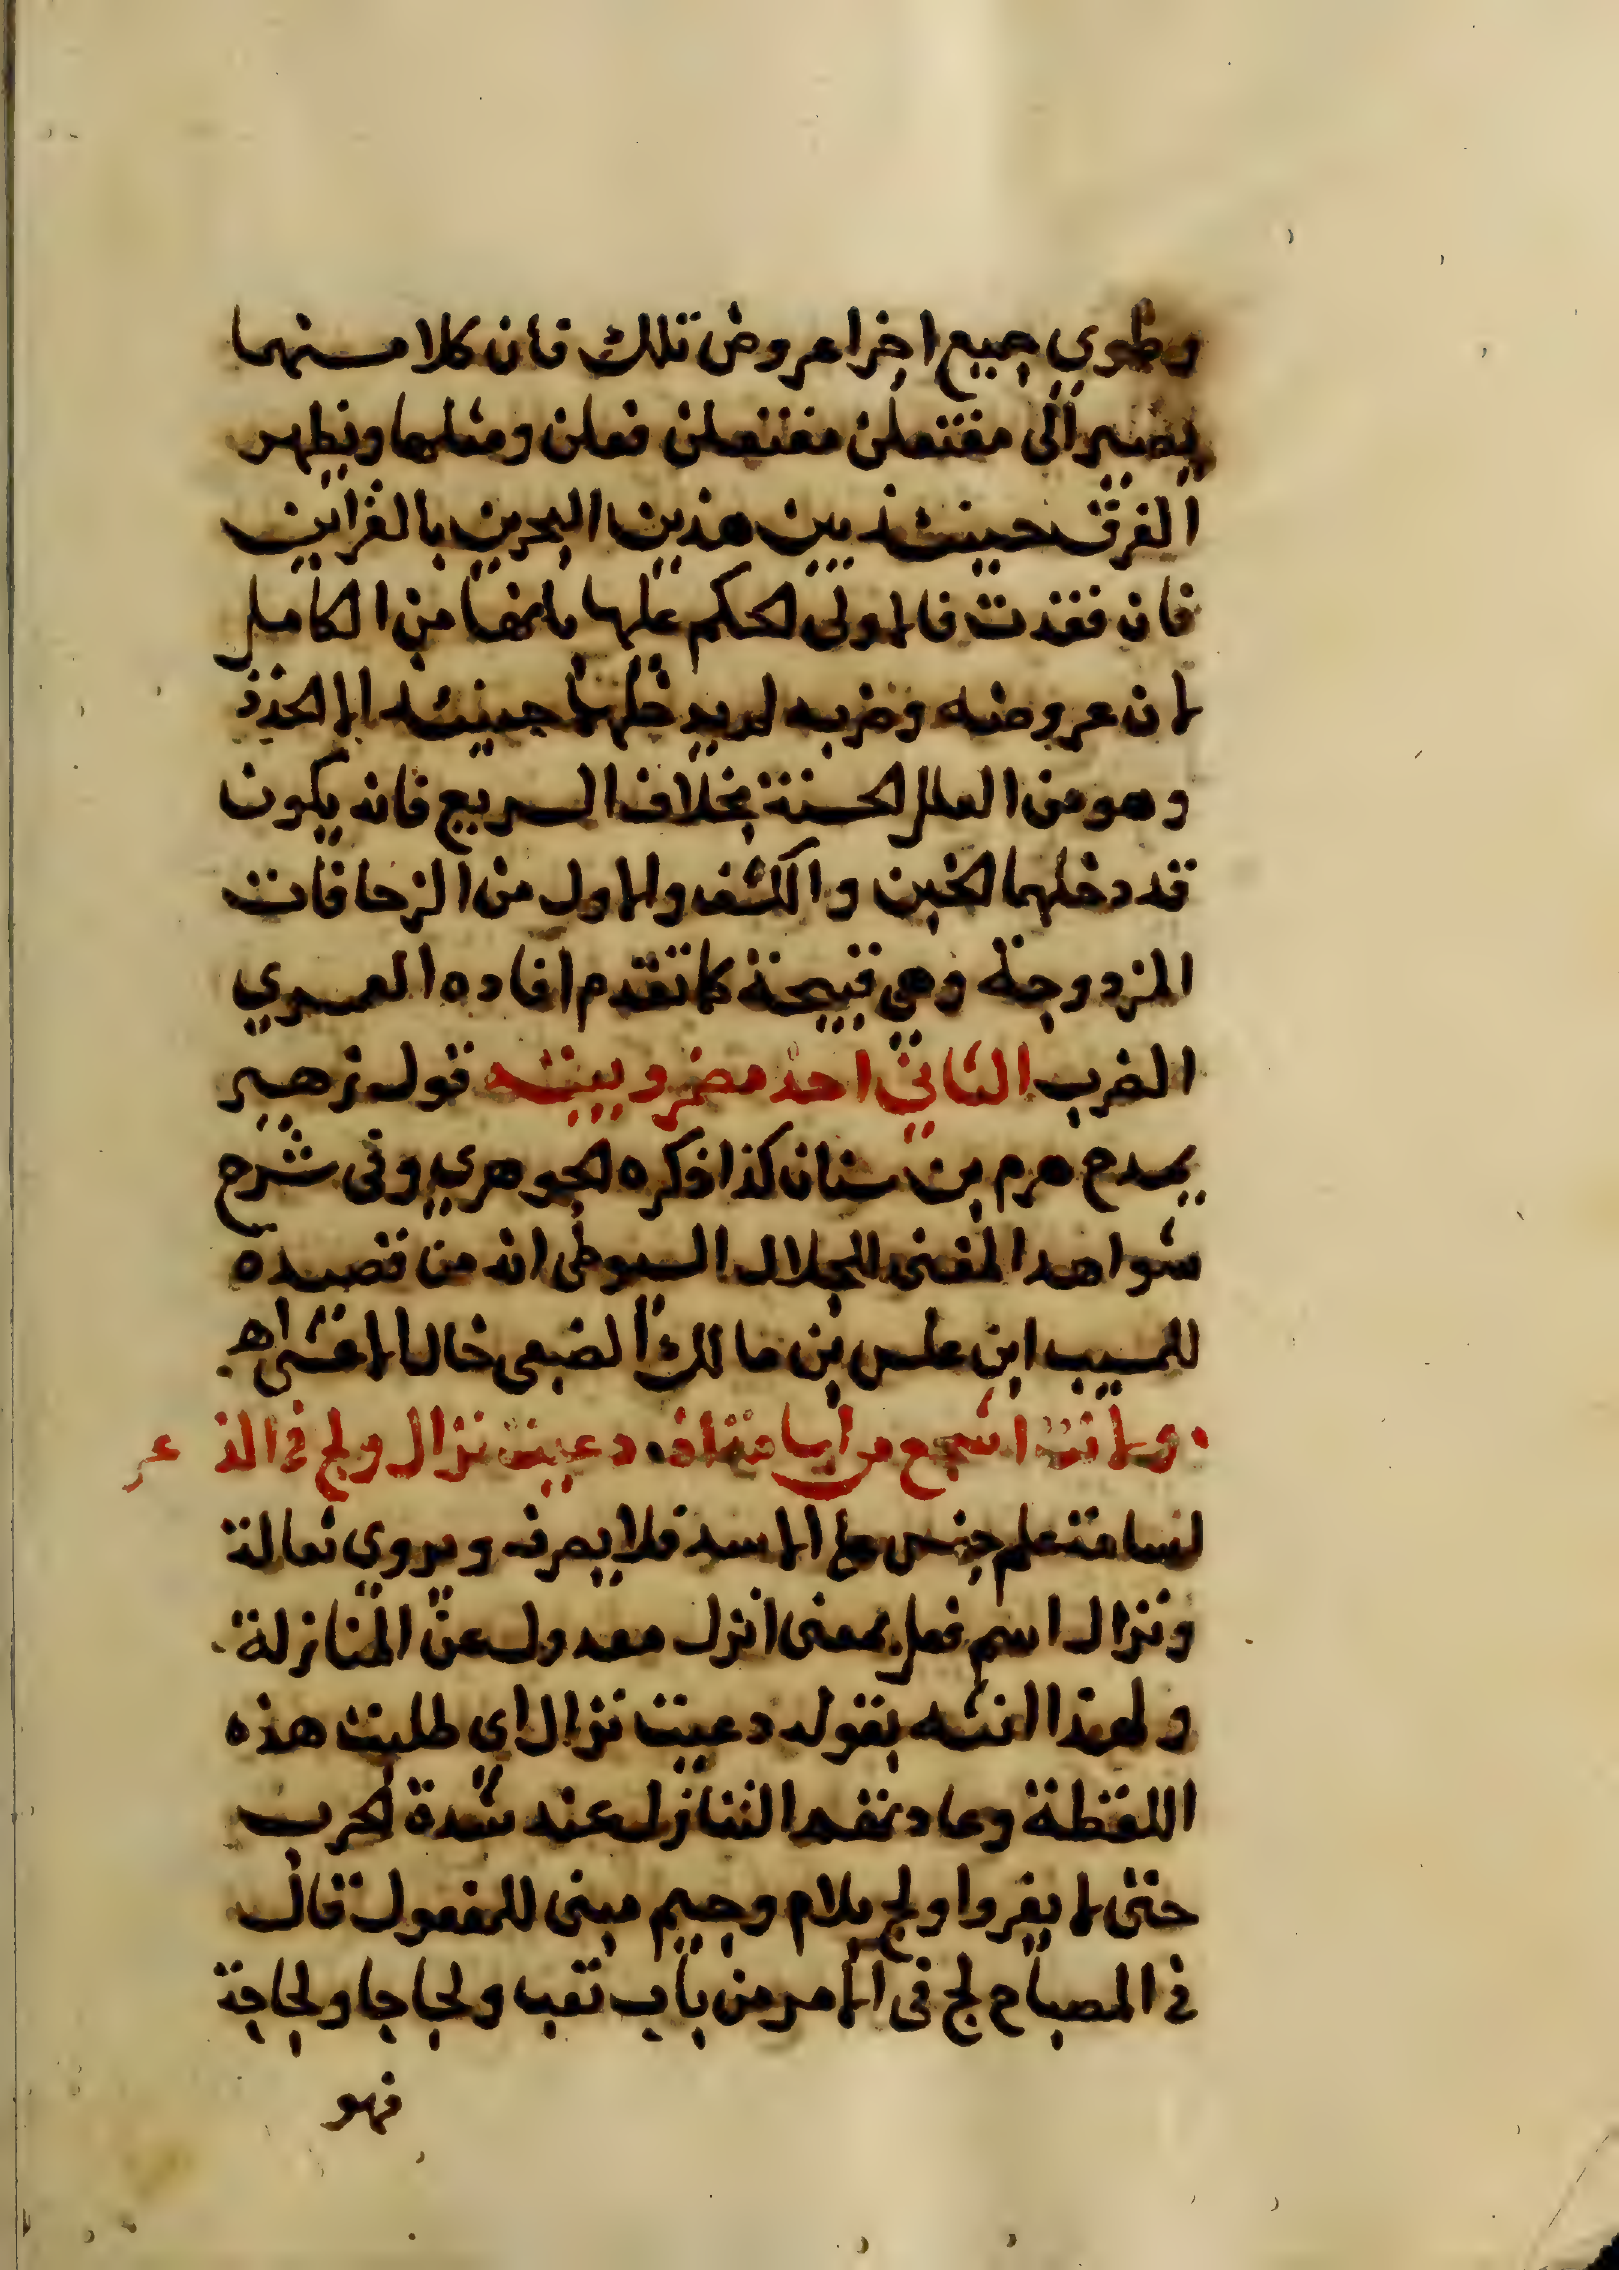 وطوي جميع اجزا عروض تلك فان كلا منهما
يصير الى مفتعلن مفتعلن فعلن ومثلها ويظهر
الفرق حينئذ بين هذين البحرين بالقراين
فان فقدت فالاولى الحكم عليها بانها من الكامل
لان عروضه وضربه لم يدخلهما حينئذ الا الحذذ
وهو من العلل الحسنة بخلاف السريع فانه يكون
قد دخلهما الخبن والكشف والاول من الزحافات
المزدوجة وهي قبيحة كما تقدم افاده العمري
الضرب الثاني احذ مضمر وبيته قول زهير
يمدح هرم بن سنان كذا ذكره الجوهري وفى شرح
شواهد المغنى للجلال السيوطى انه من قصيدة
للمسيب ابن علس بن مالك الضبعى خال الاعشى اهـ
ولانت اشجع من اسامة اذ دعيت نزال ولج فى الذعر
اسامة علم جنس على الاسد فلا يصرف ويروى ثعالة
ونزال اسم فعل بمعنى انزل معدول عن المنازلة
ولهذا انثه بقوله دعيت نزال اي طلبت هذه
اللفظة وعادتهم التنازل عند شدة الحرب
حتى لا يفروا ولج بلام وجيم مبنى للمفعول قال
فى المصباح لج فى الامر من باب تعب ولجاجا ولجاجة
فهو